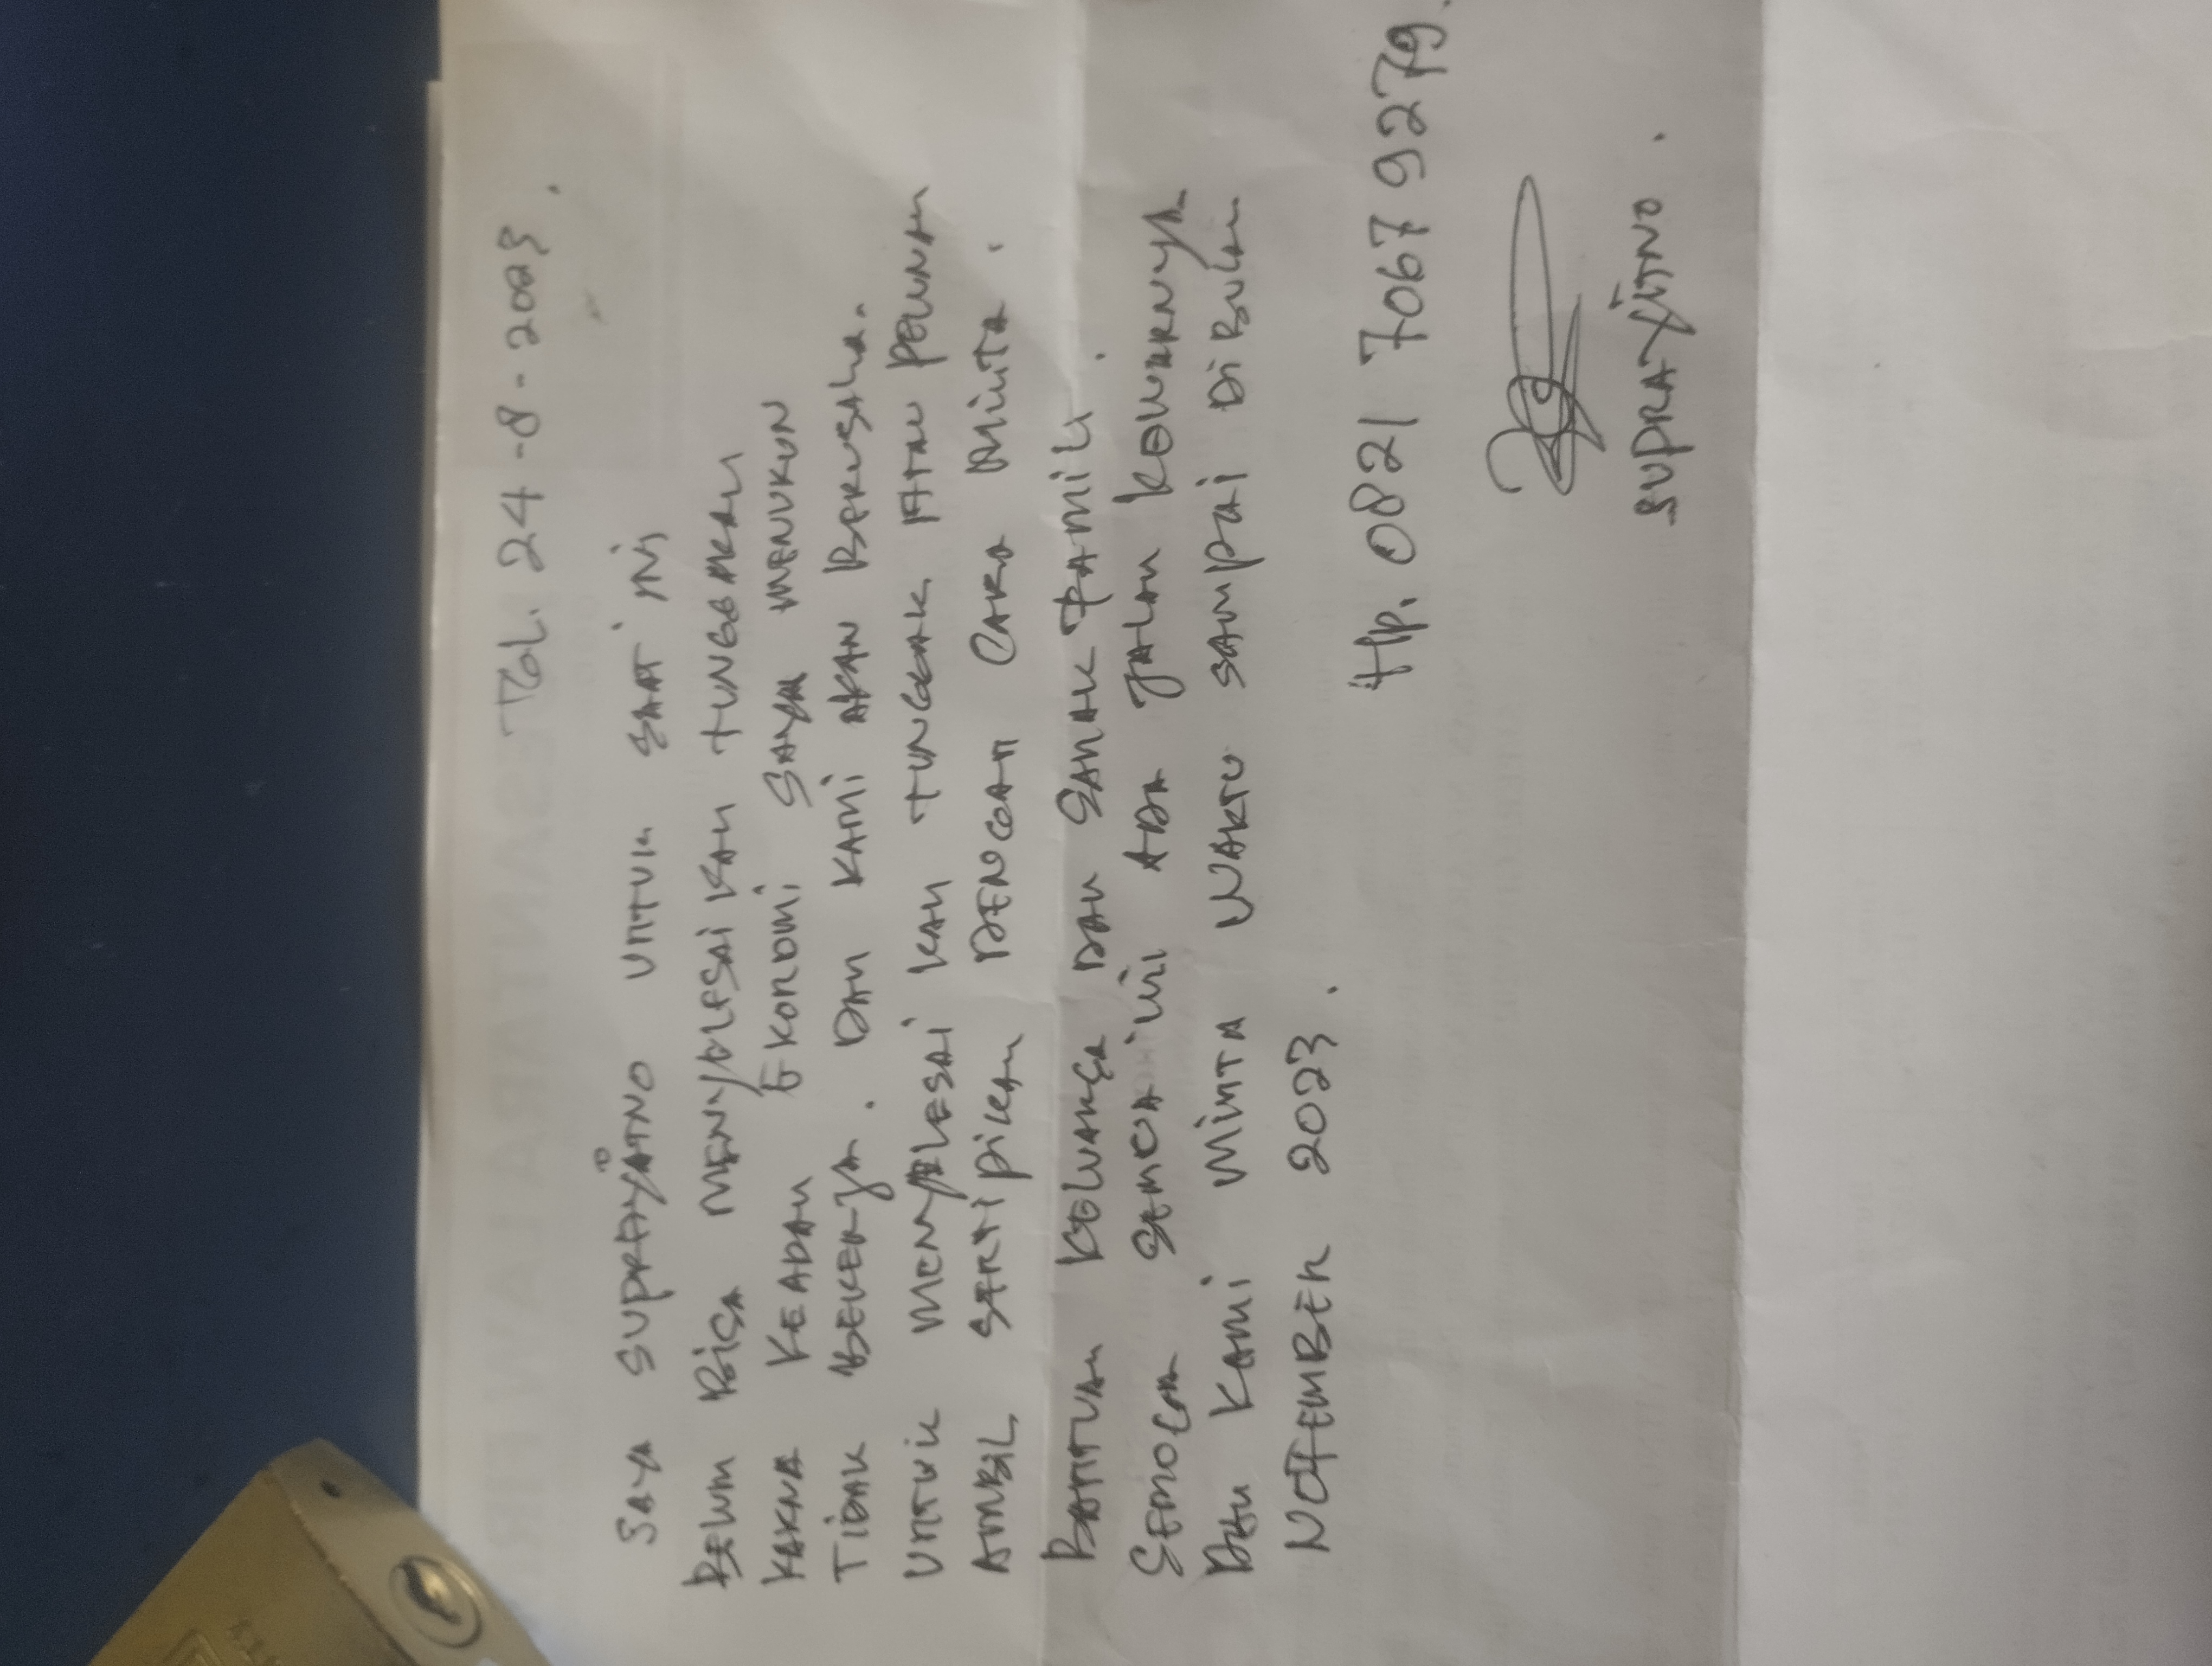 TGL. 24-8-2023.
SAYA SUPRAYITNO UNTUK SAAT INI
BELUM BISA MENYELESAIKAN TUNGGAKAN
KARNA KEADAN EKONOMI SAYA MENURUN
TIDAK BEKERJA. DAN KAMI AKAN BERUSAHA.
UNTUK MENYELESAI KAN TUNGGAK ATAU PELUNAN
AMBIL SERTIPIKAN DENGAN CARA MINTA.
BANTUAN KELUARGA DAN SANAK PAMILI.
SEMOGA SEMUA INI ADA JALAN KELUARNYA
DAN KAMI MINTA WAKTU SAMPAI DI BULAN
NOFEMBER 2023.
Hp. 0821 7067 9279.
SUPRAYITNO.